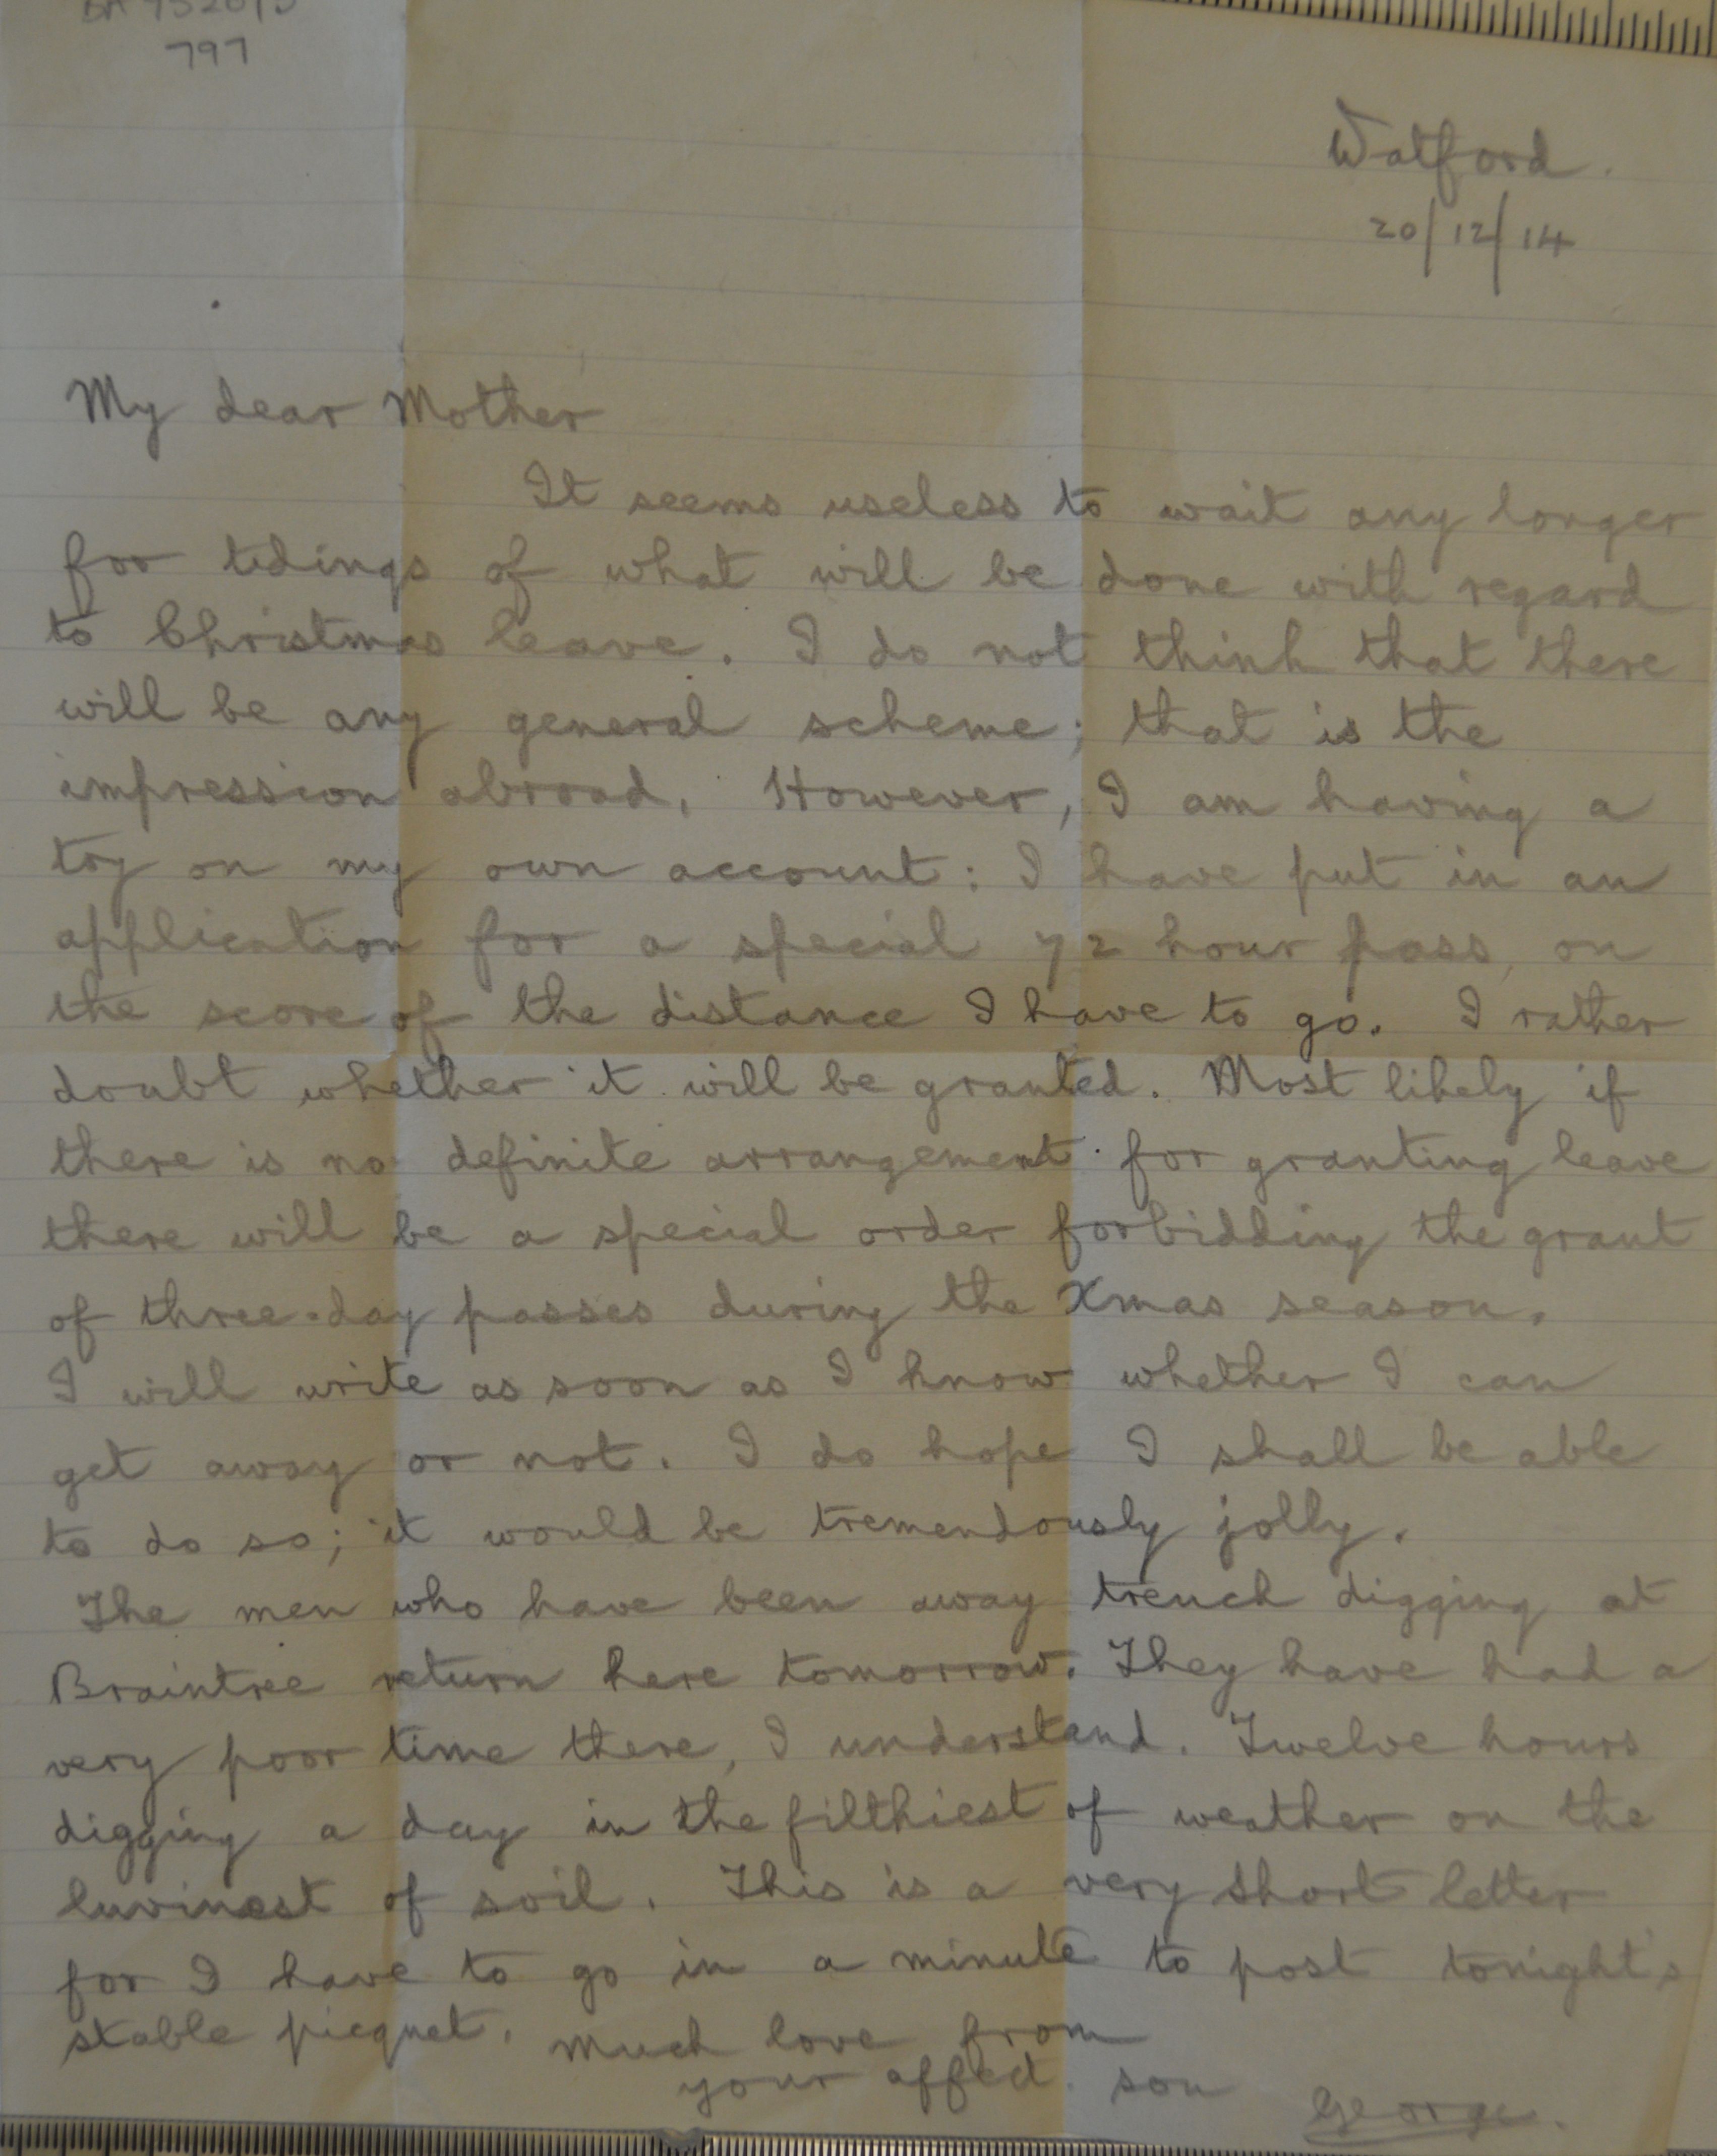 797
Watford.
20/12/14
My dear Mother
It seems useless to wait any longer
for tidings of what will be done with regard
to Christmas leave. I do not think that there
will be any general scheme; that is the
impression abroad. However, I am having a
try on my own account: I have put in an
application for a special 72 hour pass, on
the score of the distance I have to go. I rather
doubt whether it will be granted. Most likely if
there is no definite arrangement for granting leave
there will be a special order forbidding the grant
of three-day passes during the Xmas season.
I will write as soon as I know whether I can
get away or not. I do hope I shall be able
to do so; it would be tremendously jolly.
The men who have been away trench digging at
Braintree return here tomorrow. They have had a
very poor time there, I understand. Twelve hours
digging a day in the filthiest of weather on the
of soil. This is a very short letter
for I have to go in a minute to post tonight's
stable picquet. Much love from
your affect. son George.